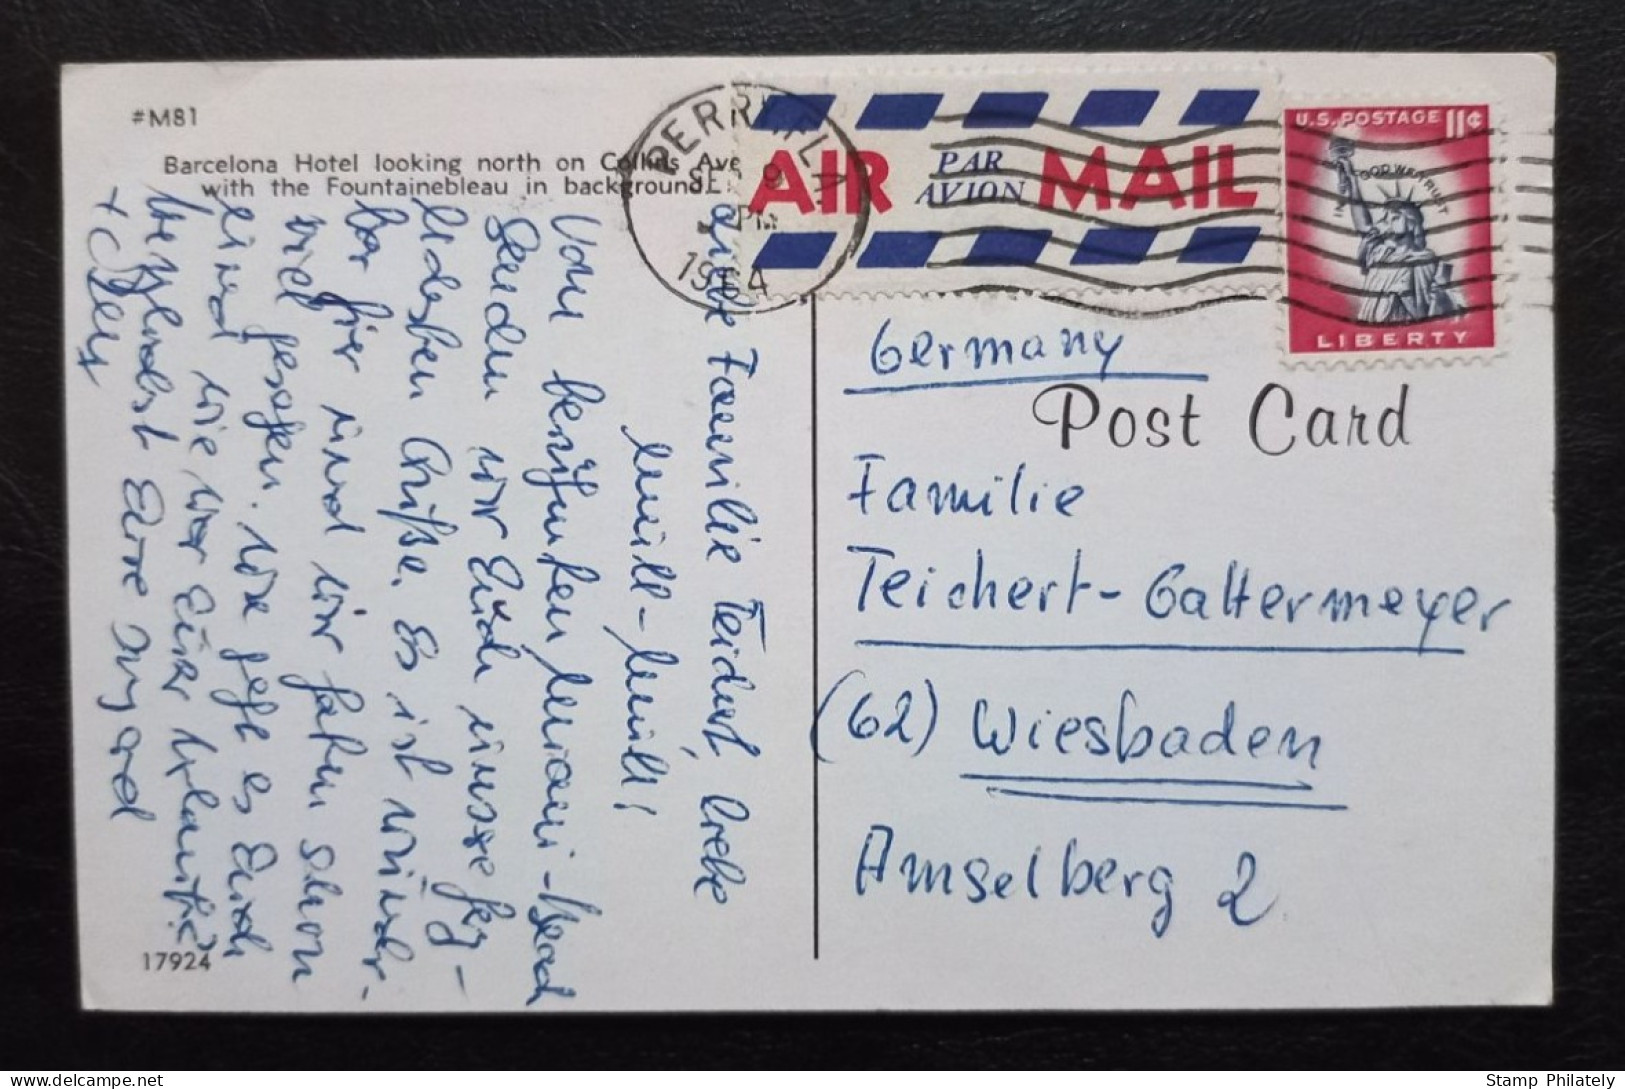 #M81
Barcelona Hotel looking north on Collins Ave
with the Fountainebleau in background.
PERRINE, FLA.
SEP 9
PM
1964
AIR PAR AVION MAIL
U.S. POSTAGE 11¢
IN GOD WE TRUST
LIBERTY
Germany
Post Card
Familie
Teichert-Galtermeyer
(62) Wiesbaden
Amselberg 2
Liebe Familie Teichert, liebe
Vom berühmten Miami-Beach
senden wir Euch unsere herz-
lichsten Grüße. Es ist wunder-
bar hier und wir haben schon
viel gesehen. Wie geht es Euch
und wie war Euer Urlaub?
Herzlichst Eure
17924
Stamp Philately